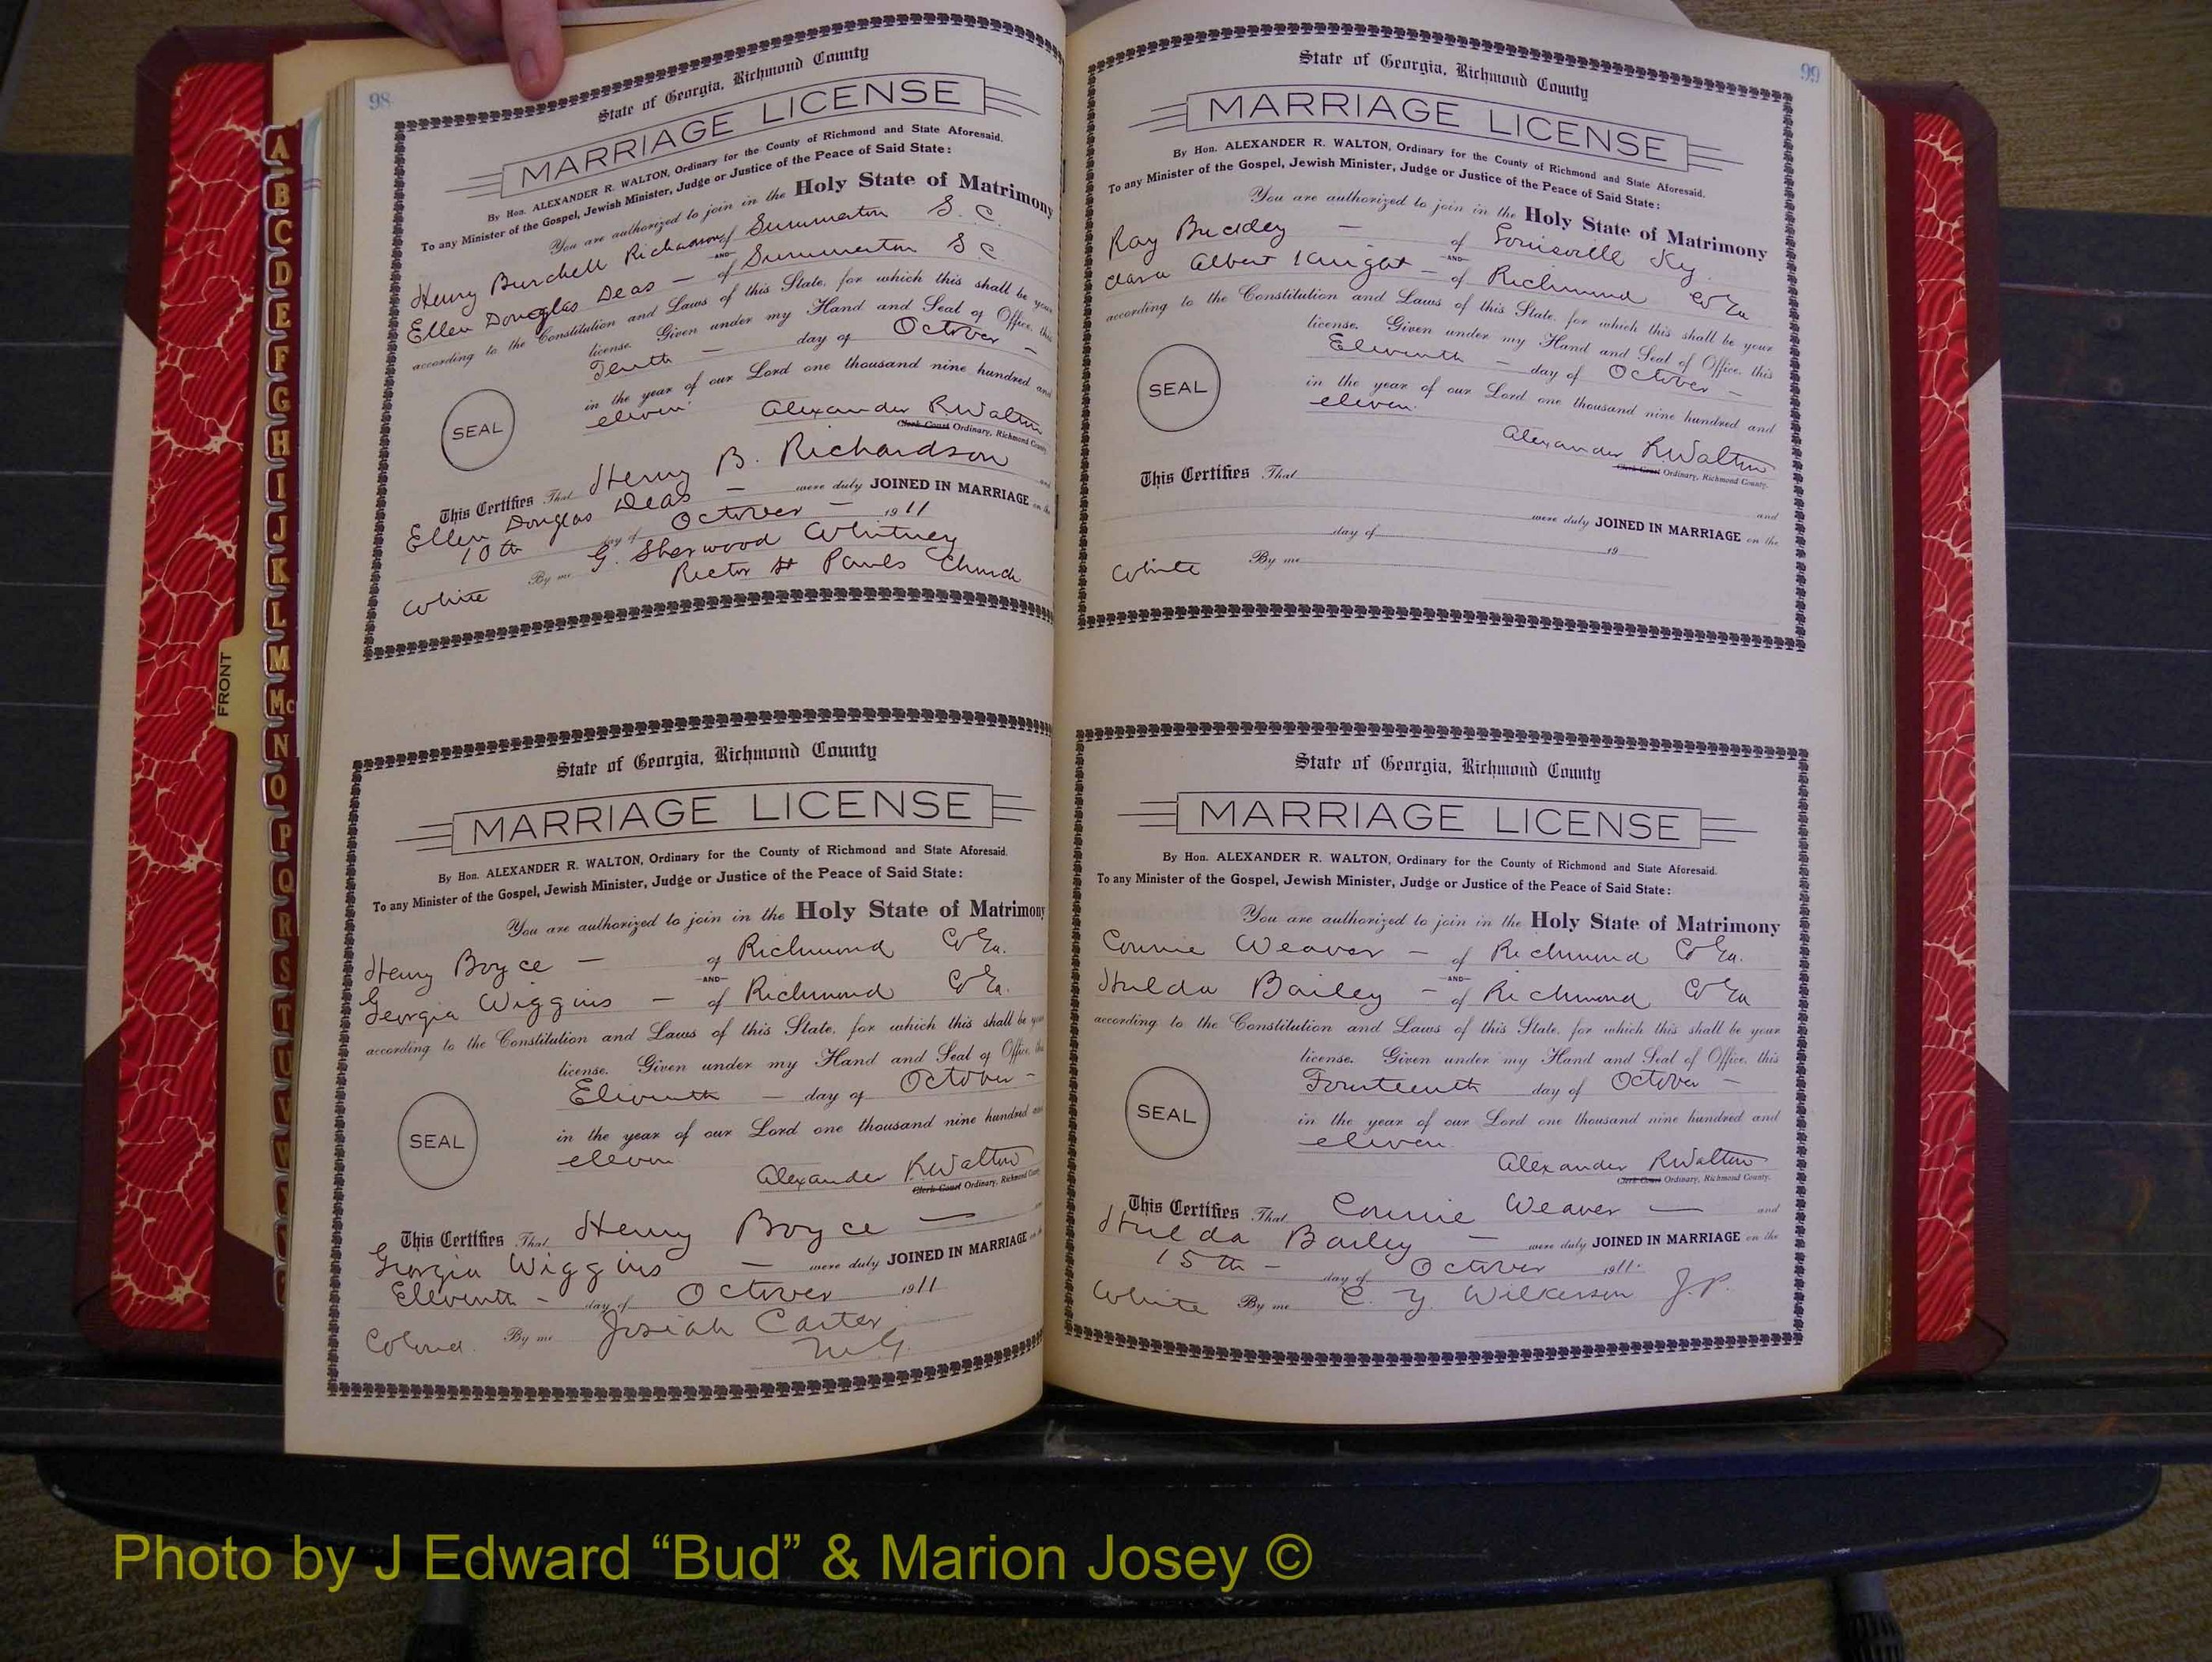 98
State of Georgia, Richmond County
MARRIAGE LICENSE
By Hon. ALEXANDER R. WALTON, Ordinary for the County of Richmond and State Aforesaid.
To any Minister of the Gospel, Jewish Minister, Judge or Justice of the Peace of Said State:
You are authorized to join in the Holy State of Matrimony
Henry Burchell Richardson of Summerton S. C.
-AND-
Ellen Douglas Deas — of Summerton S C
according to the Constitution and Laws of this State, for which this shall be your
license. Given under my Hand and Seal of Office, this
Tenth — day of October —
in the year of our Lord one thousand nine hundred and
eleven
SEAL
Alexander R Walton
Clerk Court Ordinary, Richmond County
This Certifies That Henry B. Richardson and
Ellen Douglas Deas — were duly JOINED IN MARRIAGE on the
10th day of October — 1911
By me G. Sherwood Whitney
Rector St Pauls Church
White
State of Georgia, Richmond County
MARRIAGE LICENSE
By Hon. ALEXANDER R. WALTON, Ordinary for the County of Richmond and State Aforesaid.
To any Minister of the Gospel, Jewish Minister, Judge or Justice of the Peace of Said State:
You are authorized to join in the Holy State of Matrimony
Henry Boyce — of Richmond Co Ga.
-AND-
Georgia Wiggins — of Richmond Co Ga.
according to the Constitution and Laws of this State, for which this shall be your
license. Given under my Hand and Seal of Office, this
Eleventh — day of October —
in the year of our Lord one thousand nine hundred and
eleven
SEAL
Alexander R Walton
Clerk Court Ordinary, Richmond County
This Certifies That Henry Boyce —
Georgia Wiggins — were duly JOINED IN MARRIAGE on the
Eleventh — day of October 1911
Colored By me Josiah Carter
M.G.
99
State of Georgia, Richmond County
MARRIAGE LICENSE
By Hon. ALEXANDER R. WALTON, Ordinary for the County of Richmond and State Aforesaid.
To any Minister of the Gospel, Jewish Minister, Judge or Justice of the Peace of Said State:
You are authorized to join in the Holy State of Matrimony
Ray Buckley — of Louisville Ky.
-AND-
Clara Albert Knight — of Richmond Co Ga
according to the Constitution and Laws of this State, for which this shall be your
license. Given under my Hand and Seal of Office, this
Eleventh — day of October —
in the year of our Lord one thousand nine hundred and
eleven.
SEAL
Alexander R Walton
Clerk Court Ordinary, Richmond County.
This Certifies That
and
were duly JOINED IN MARRIAGE on the
day of 19
White By me
State of Georgia, Richmond County
MARRIAGE LICENSE
By Hon. ALEXANDER R. WALTON, Ordinary for the County of Richmond and State Aforesaid.
To any Minister of the Gospel, Jewish Minister, Judge or Justice of the Peace of Said State:
You are authorized to join in the Holy State of Matrimony
Connie Weaver — of Richmond Co Ga.
-AND-
Hulda Bailey — of Richmond Co Ga
according to the Constitution and Laws of this State, for which this shall be your
license. Given under my Hand and Seal of Office, this
Fourteenth day of October —
in the year of our Lord one thousand nine hundred and
eleven.
SEAL
Alexander R Walton
Clerk Court Ordinary, Richmond County.
This Certifies That Connie Weaver — and
Hulda Bailey — were duly JOINED IN MARRIAGE on the
15th — day of October 1911.
White By me C. Y. Wilkerson J.P.
FRONT
A
B
C
D
E
F
G
H
I
J
K
L
M
Mc
N
O
P
Q
R
S
T
U
V
Photo by J Edward “Bud” & Marion Josey ©